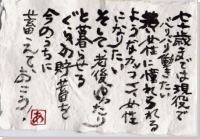 七十歳までは現役で
バリバリ働きたい
若い女性に憧れられる
ようなかっこイイ女性
になりたい
そして老後はゆったり
と暮らせる
ぐらいの貯蓄を
今のうちに
蓄えておこう!
あ